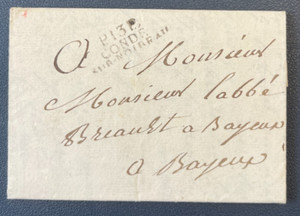 P.13.P.
CONDÉ
SUR-NOIREAU
A Monsieur
Monsieur labbé
Briault a Bayeux
a Bayeux